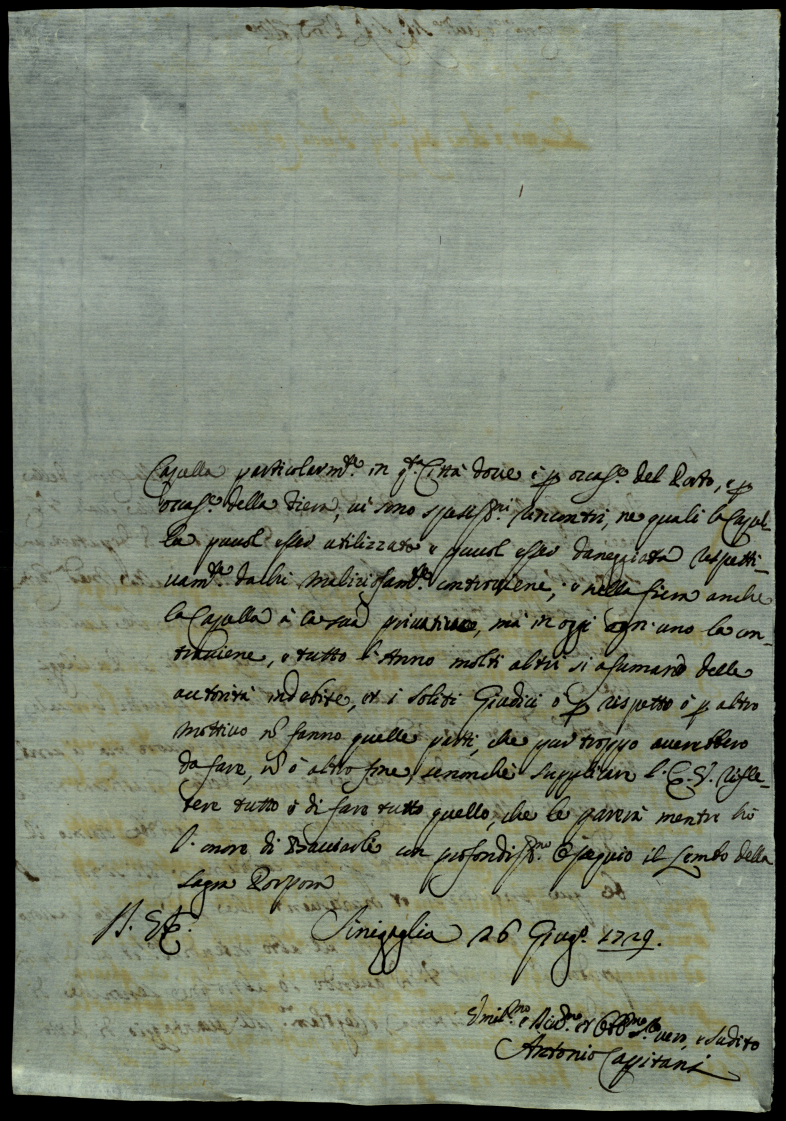 Capella particolarm.te in q.ta Città dove è p occas.e del Porto, e p
occas.e della Fiera, vi sono spessiss.mi rincontri, ne quali la Capel-
la puol esser utilizzata e puol esser daneggiata rispetti-
vam.te da chi malizosam.te contraviene, e nella fiera anche
la Capella à la sua privativa, mà in oggi ogni uno la con-
traviene, e tutto l'Anno molti altri si asumano delle
autorità indebite, et i soliti Giudici ò p rispetto ò p altro
mottivo nō fanno quelle parti, che pur troppo averebbero
da fare, nō ò altro fine, senonche supplicare l'E. V. rifle-
tere tutto e di fare tutto quello, che le parerà mentre hò
l'onore di Bacciarle con profondiss.mo Ossequio il Lembo della
Sagra Porpora
Sinigaglia 26 Giug.o 1729.
Umil.mo e Div.mo et Obb.mo S.re vero, e sudito
Antonio Capitani